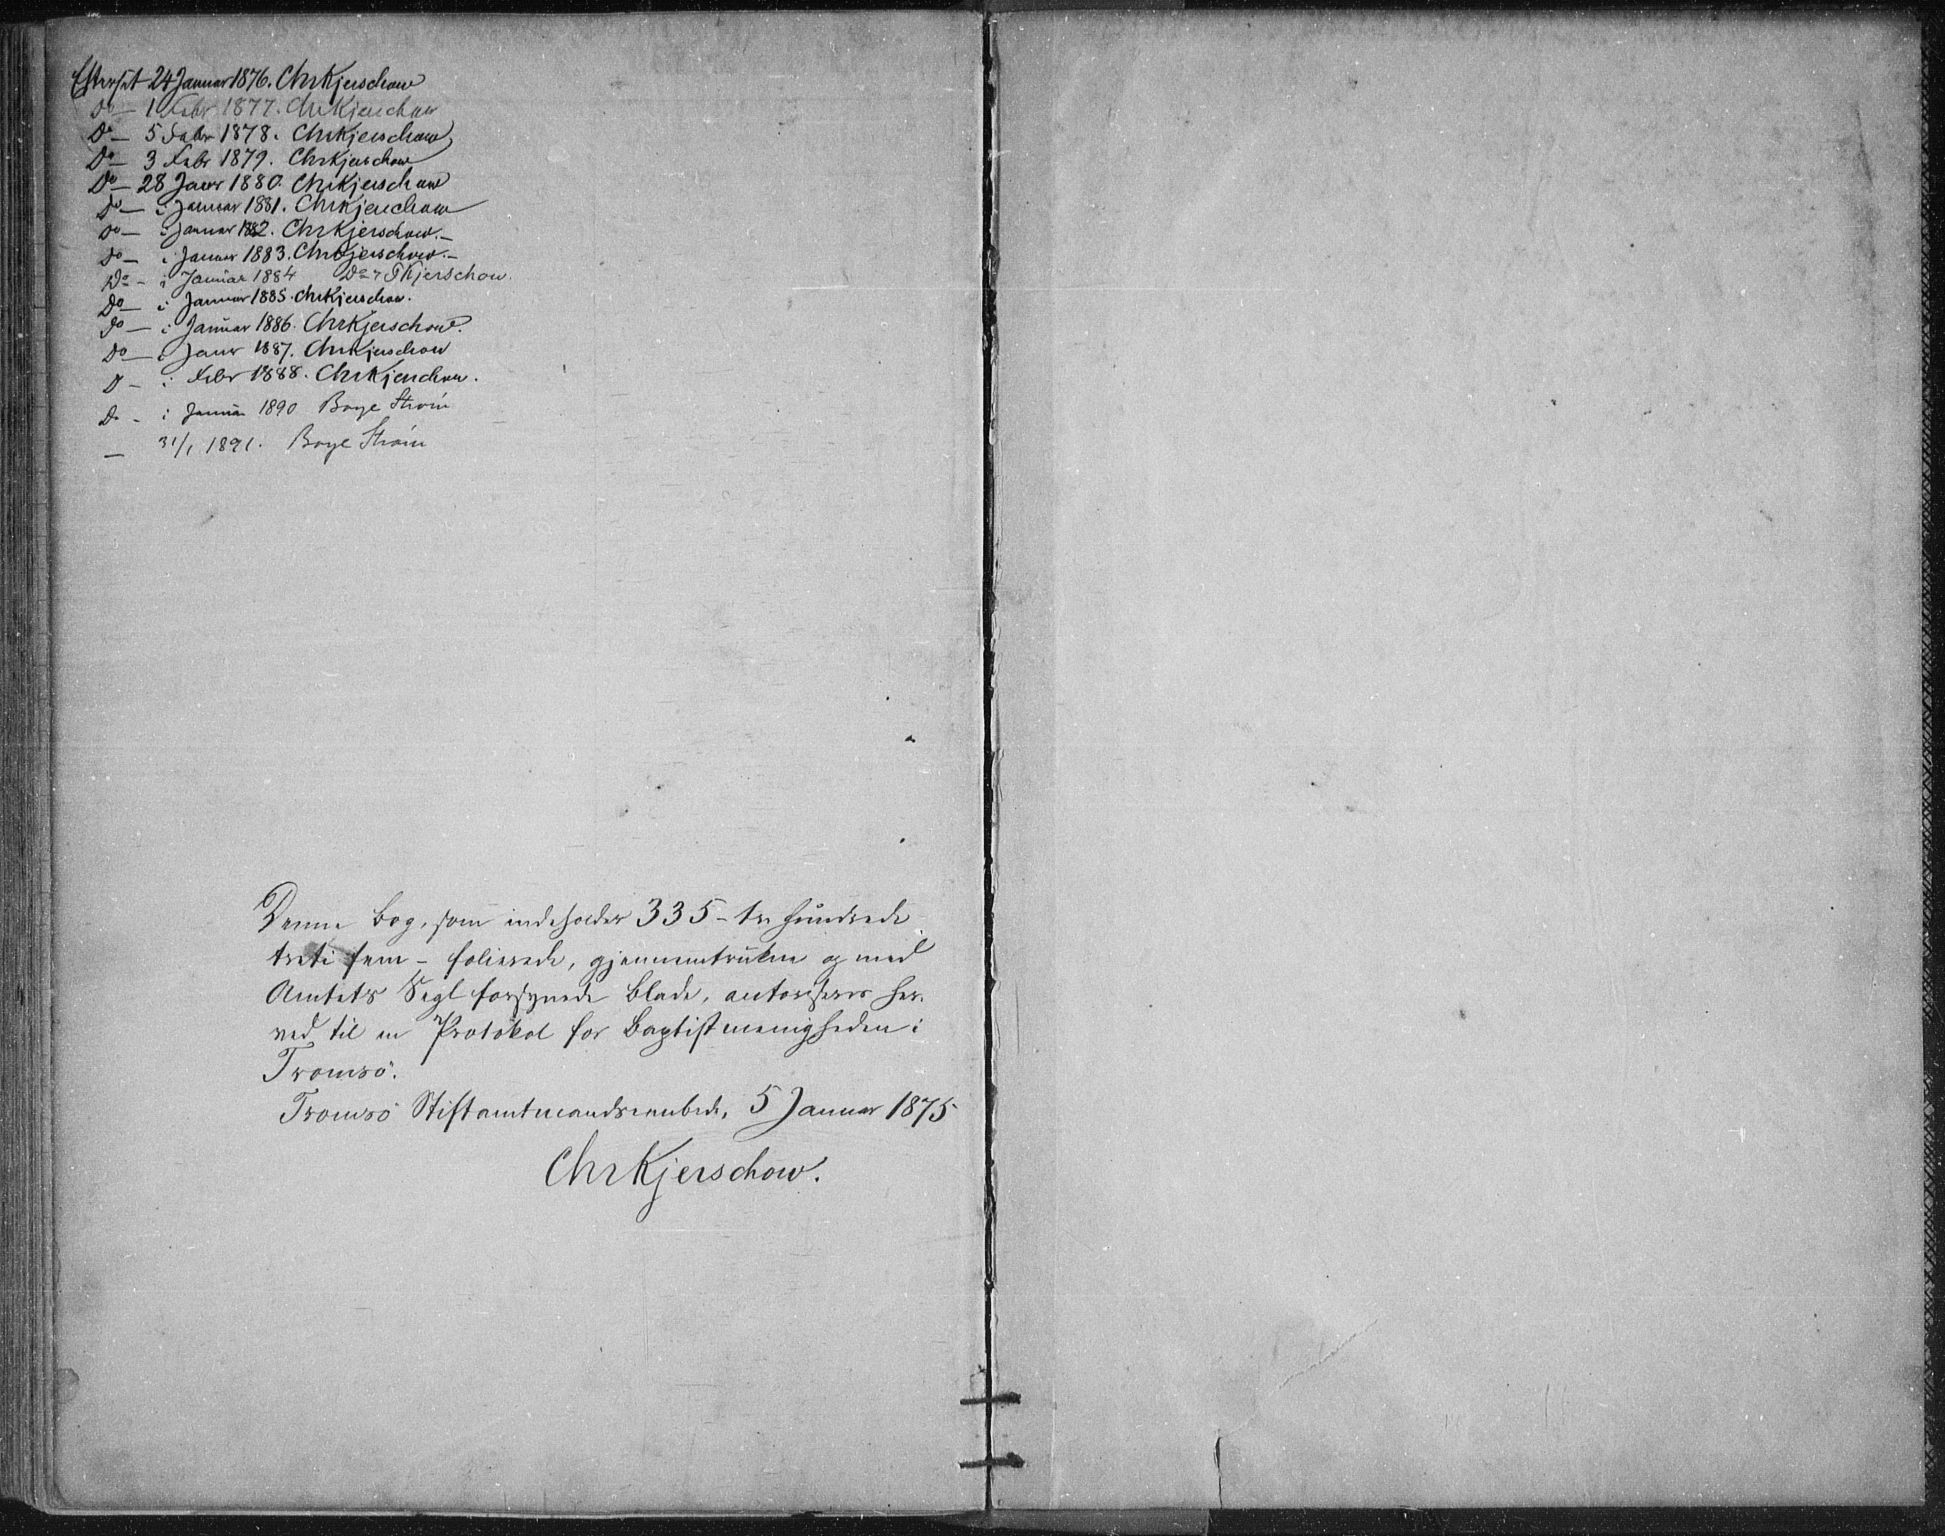 Efterset 24 Januar 1876. ChrKjerschow
Do — 1 Febr 1877. ChrKjerschow
Do — 5 Febr 1878. ChrKjerschow
Do — 3 Febr 1879. ChrKjerschow
Do — 28 Janr 1880. ChrKjerschow
Do — i Januar 1881. ChrKjerschow
Do — i Januar 1882. ChrKjerschow. —
Do — i Januar 1883. ChrKjerschow. —
Do — i Januar 1884 Kjerschow.
Do — i Januar 1885. ChrKjerschow.
Do — i Januar 1886. ChrKjerschow.
Do — i Janr 1887. ChrKjerschow
D — i Febr 1888. ChrKjerschow.
Do - i Januar 1890 Boye Strøm
— 31/1 1891. Boye Strøm
Denne Bog, som indeholder 335 - tre hundrede
treti fem - folierede, gjennemtrukne og med
Amtets Segl forsynede Blade, autoriseres her-
ved til en Protokol for Baptistmenigheden i
Tromsö.
Tromsö Stiftamtmandsembede, 5 Januar 1875
ChrKjerschow.